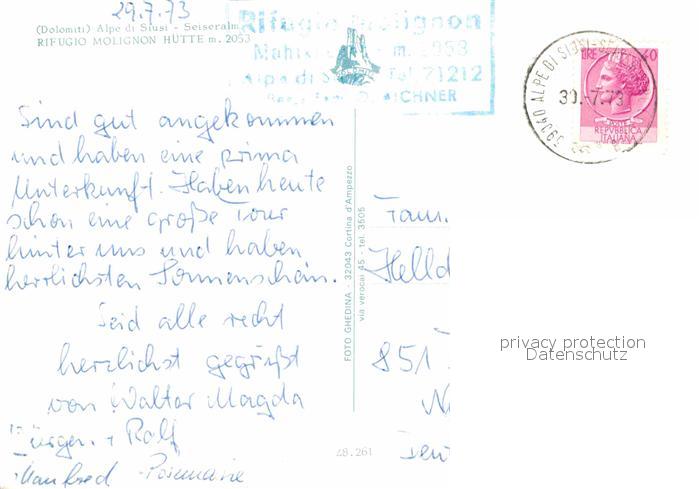 29.7.73
(Dolomiti) Alpe di Siusi - Seiseralm
RIFUGIO MOLIGNON HÜTTE m. 2053
Rifugio Molignon
m. 2053
Alpe di Tel. 71212
39040 ALPE DI SIUSI
30.-7.73
LIRE 40
REPVBBLICA
ITALIANA
Sind gut angekommen
und haben eine prima
Unterkunft. Haben heute
schon eine große Tour
hinter uns und haben
herrlichsten Sonnenschein.
Seid alle recht
herzlichst gegrüßt
von Walter Magda
Jürgen + Ralf
Manfred Rosemarie
FOTO GHEDINA - 32043 Cortina d'Ampezzo
via verocai 45 - tel. 3505
Fam.
Helld
851
N
Deu
48.261
privacy protection
Datenschutz